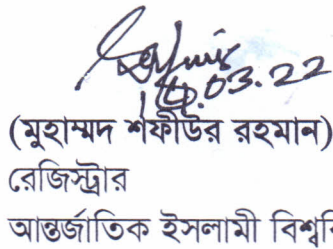 .03.22
(মুহাম্মদ শফীউর রহমান)
রেজিস্ট্রার
আন্তর্জাতিক ইসলামী